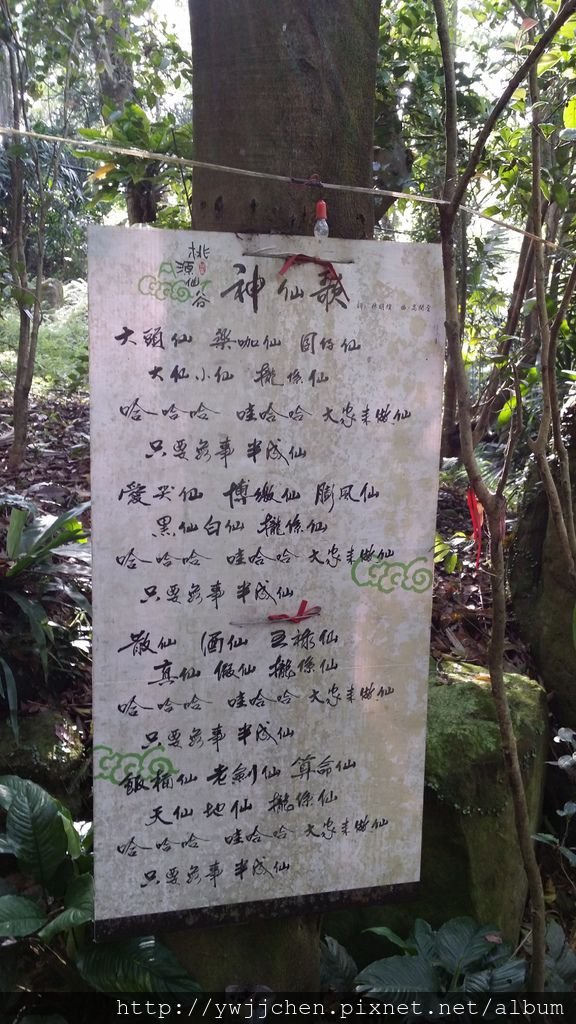 桃源仙谷
神仙歌
大頭仙 藥咖仙 囝仔仙
大仙小仙 攏係仙
哈哈哈 哇哈哈 大家來做仙
只要無事 半成仙
愛哭仙 博繳仙 膨風仙
黑仙白仙 攏係仙
哈哈哈 哇哈哈 大家來做仙
只要無事 半成仙
散仙 酒仙 仙
真仙 假仙 攏係仙
哈哈哈 哇哈哈 大家來做仙
只要無事 半成仙
飯桶仙 老劍仙 算命仙
天仙 地仙 攏係仙
哈哈哈 哇哈哈 大家來做仙
只要無事 半成仙
http://ywjjchen.pixnet.net/album